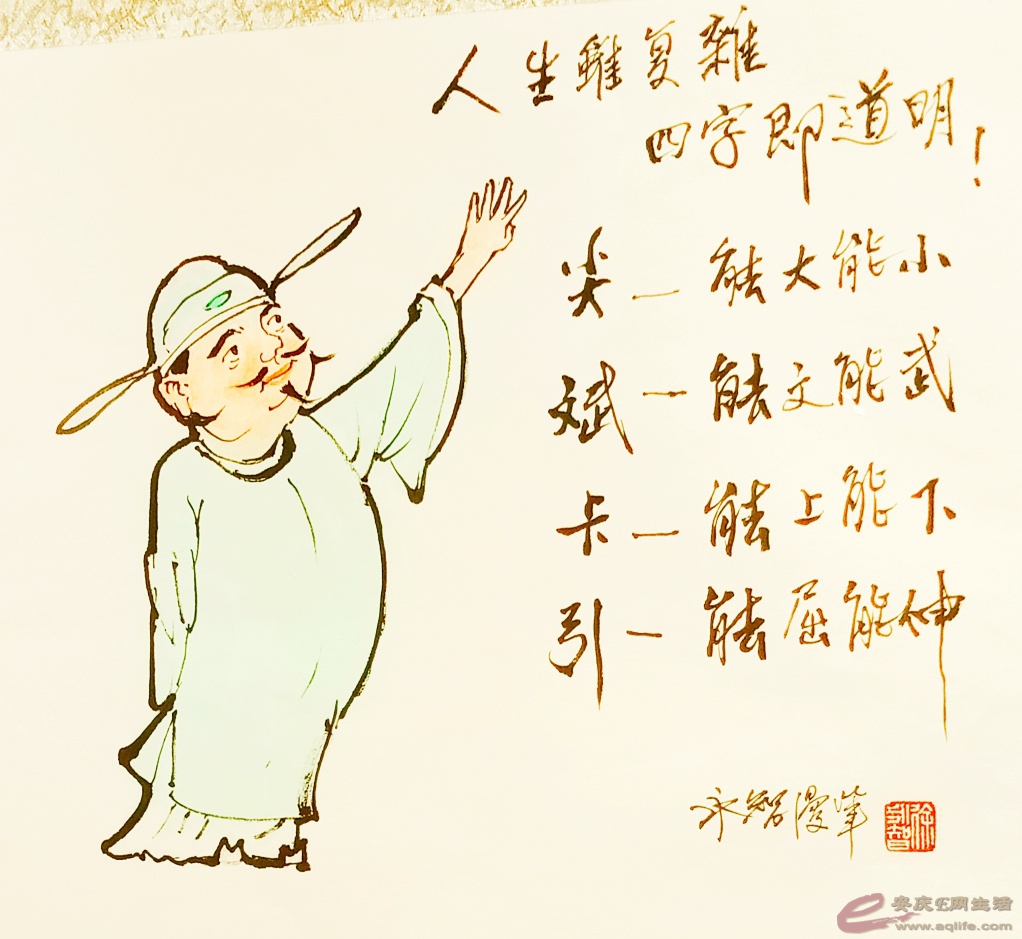 人生雖复雜
四字即道明!
尖一能大能小
斌一能文能武
卡一能上能下
引一能屈能伸
永智漫笔
安庆E网生活
www.aqlife.com